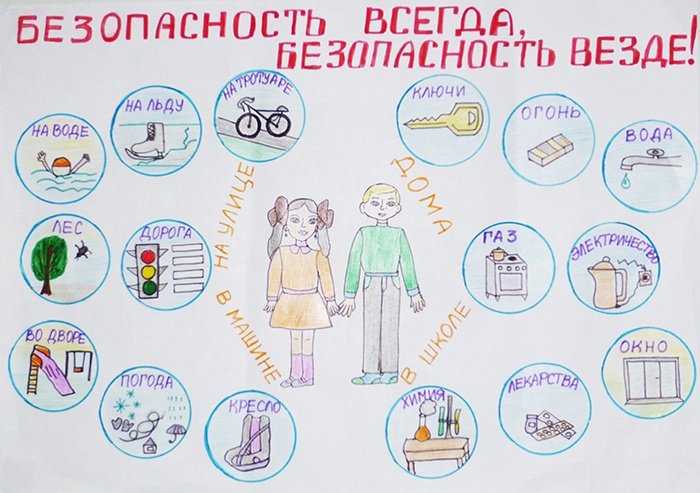 БЕЗОПАСНОСТЬ ВСЕГДА,
БЕЗОПАСНОСТЬ ВЕЗДЕ!
НА ВОДЕ
НА ЛЬДУ
НА ТРОТУАРЕ
КЛЮЧИ
ОГОНЬ
ВОДА
ЛЕС
ДОРОГА
НА УЛИЦЕ
ДОМА
ГАЗ
ЭЛЕКТРИЧЕСТВО
ВО ДВОРЕ
ПОГОДА
КРЕСЛО
В МАШИНЕ
В ШКОЛЕ
ХИМИЯ
ЛЕКАРСТВА
ОКНО